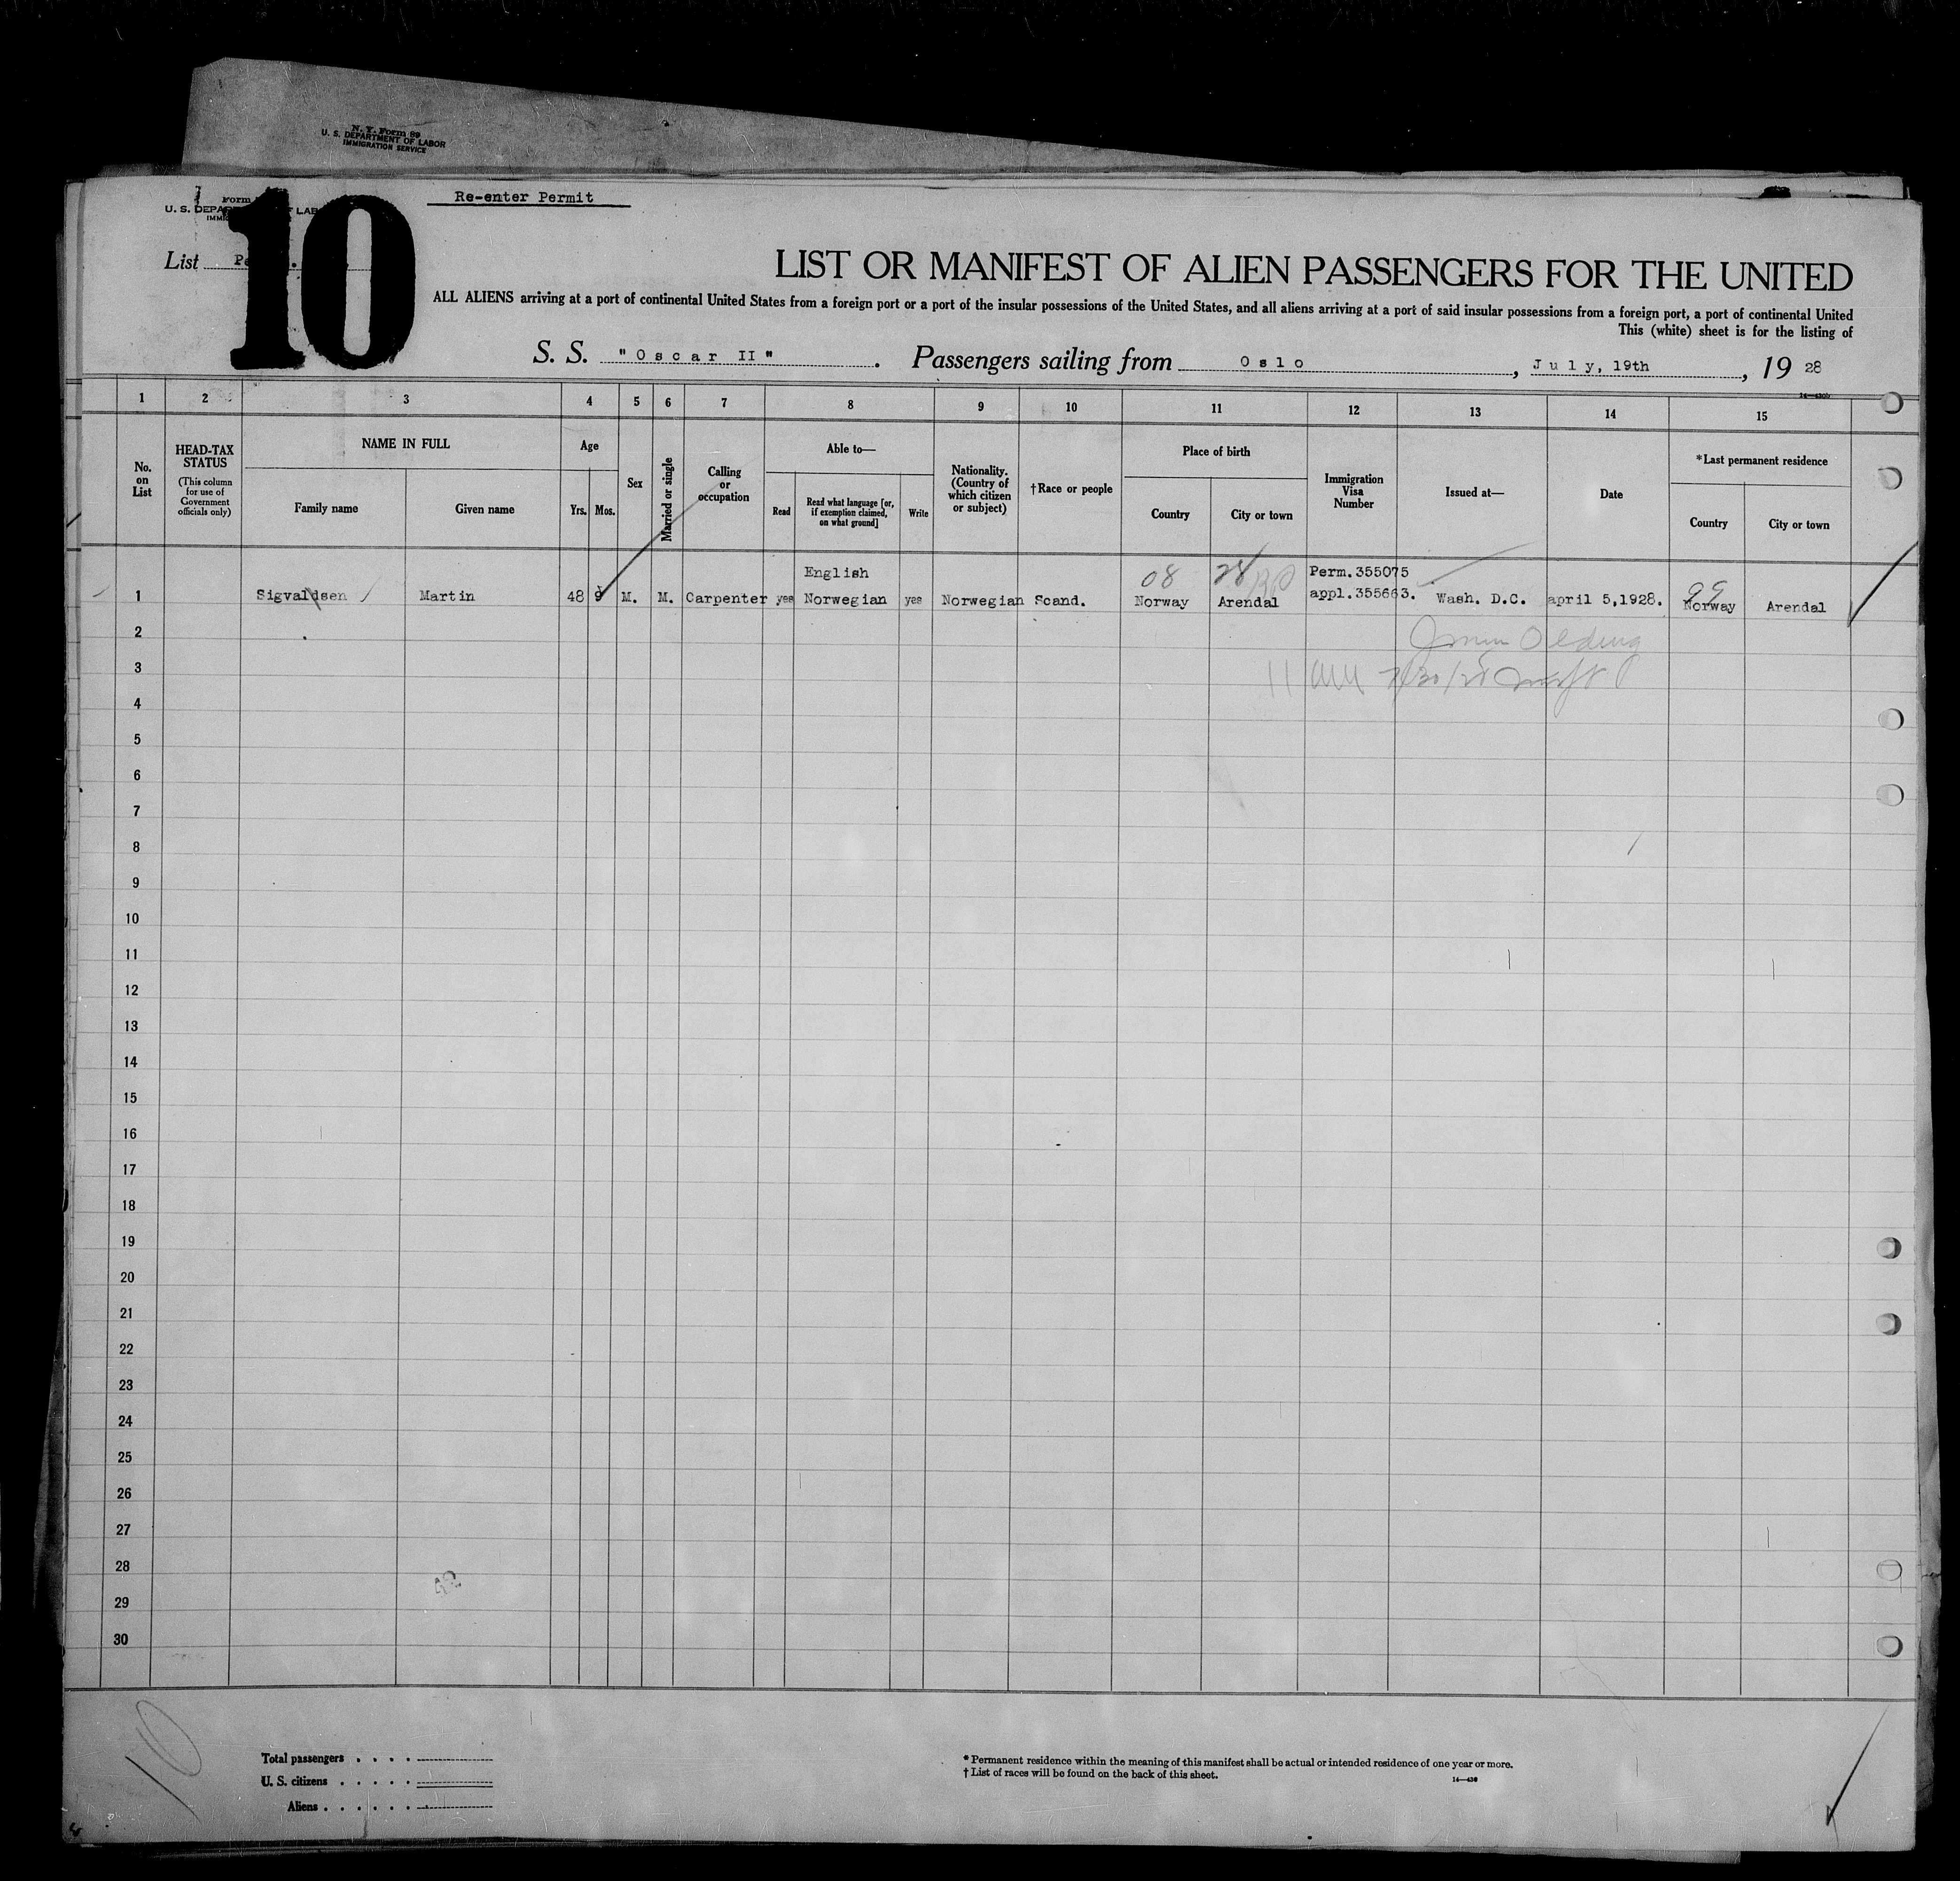 N. Y. Form 89
U. S. DEPARTMENT OF LABOR
IMMIGRATION SERVICE
Form
U. S.
Re-enter Permit
10
List
LIST OR MANIFEST OF ALIEN PASSENGERS FOR THE UNITED
ALL ALIENS arriving at a port of continental United States from a foreign port or a port of the insular possessions of the United States, and all aliens arriving at a port of said insular possessions from a foreign port, a port of continental United
This (white) sheet is for the listing of
S. S. "Oscar II". Passengers sailing from Oslo, July, 19th, 19 28
1 2 3 4 5 6 7 8 9 10 11 12 13 14 15
No. on List
HEAD-TAX STATUS
(This column for use of Government officials only)
NAME IN FULL
Family name
Given name
Age
Yrs. Mos.
Sex
Married or single
Calling or occupation
Able to—
Read
Read what language [or, if exemption claimed, on what ground]
Write
Nationality. (Country of which citizen or subject)
†Race or people
Place of birth
Country
City or town
Immigration Visa Number
Issued at—
Date
*Last permanent residence
Country
City or town
08 28
English Perm.355075
1 Sigvaldsen Martin 48 9 M. M. Carpenter yes Norwegian yes Norwegian Scand. Norway Arendal appl.355663. Wash. D.C. april 5,1928. 99 Norway Arendal
2
3 7/30/28
4
5
6
7
8
9
10
11
12
13
14
15
16
17
18
19
20
21
22
23
24
25
26
27
28
29
30
10
Total passengers
U. S. citizens
Aliens
* Permanent residence within the meaning of this manifest shall be actual or intended residence of one year or more.
† List of races will be found on the back of this sheet.
14—430